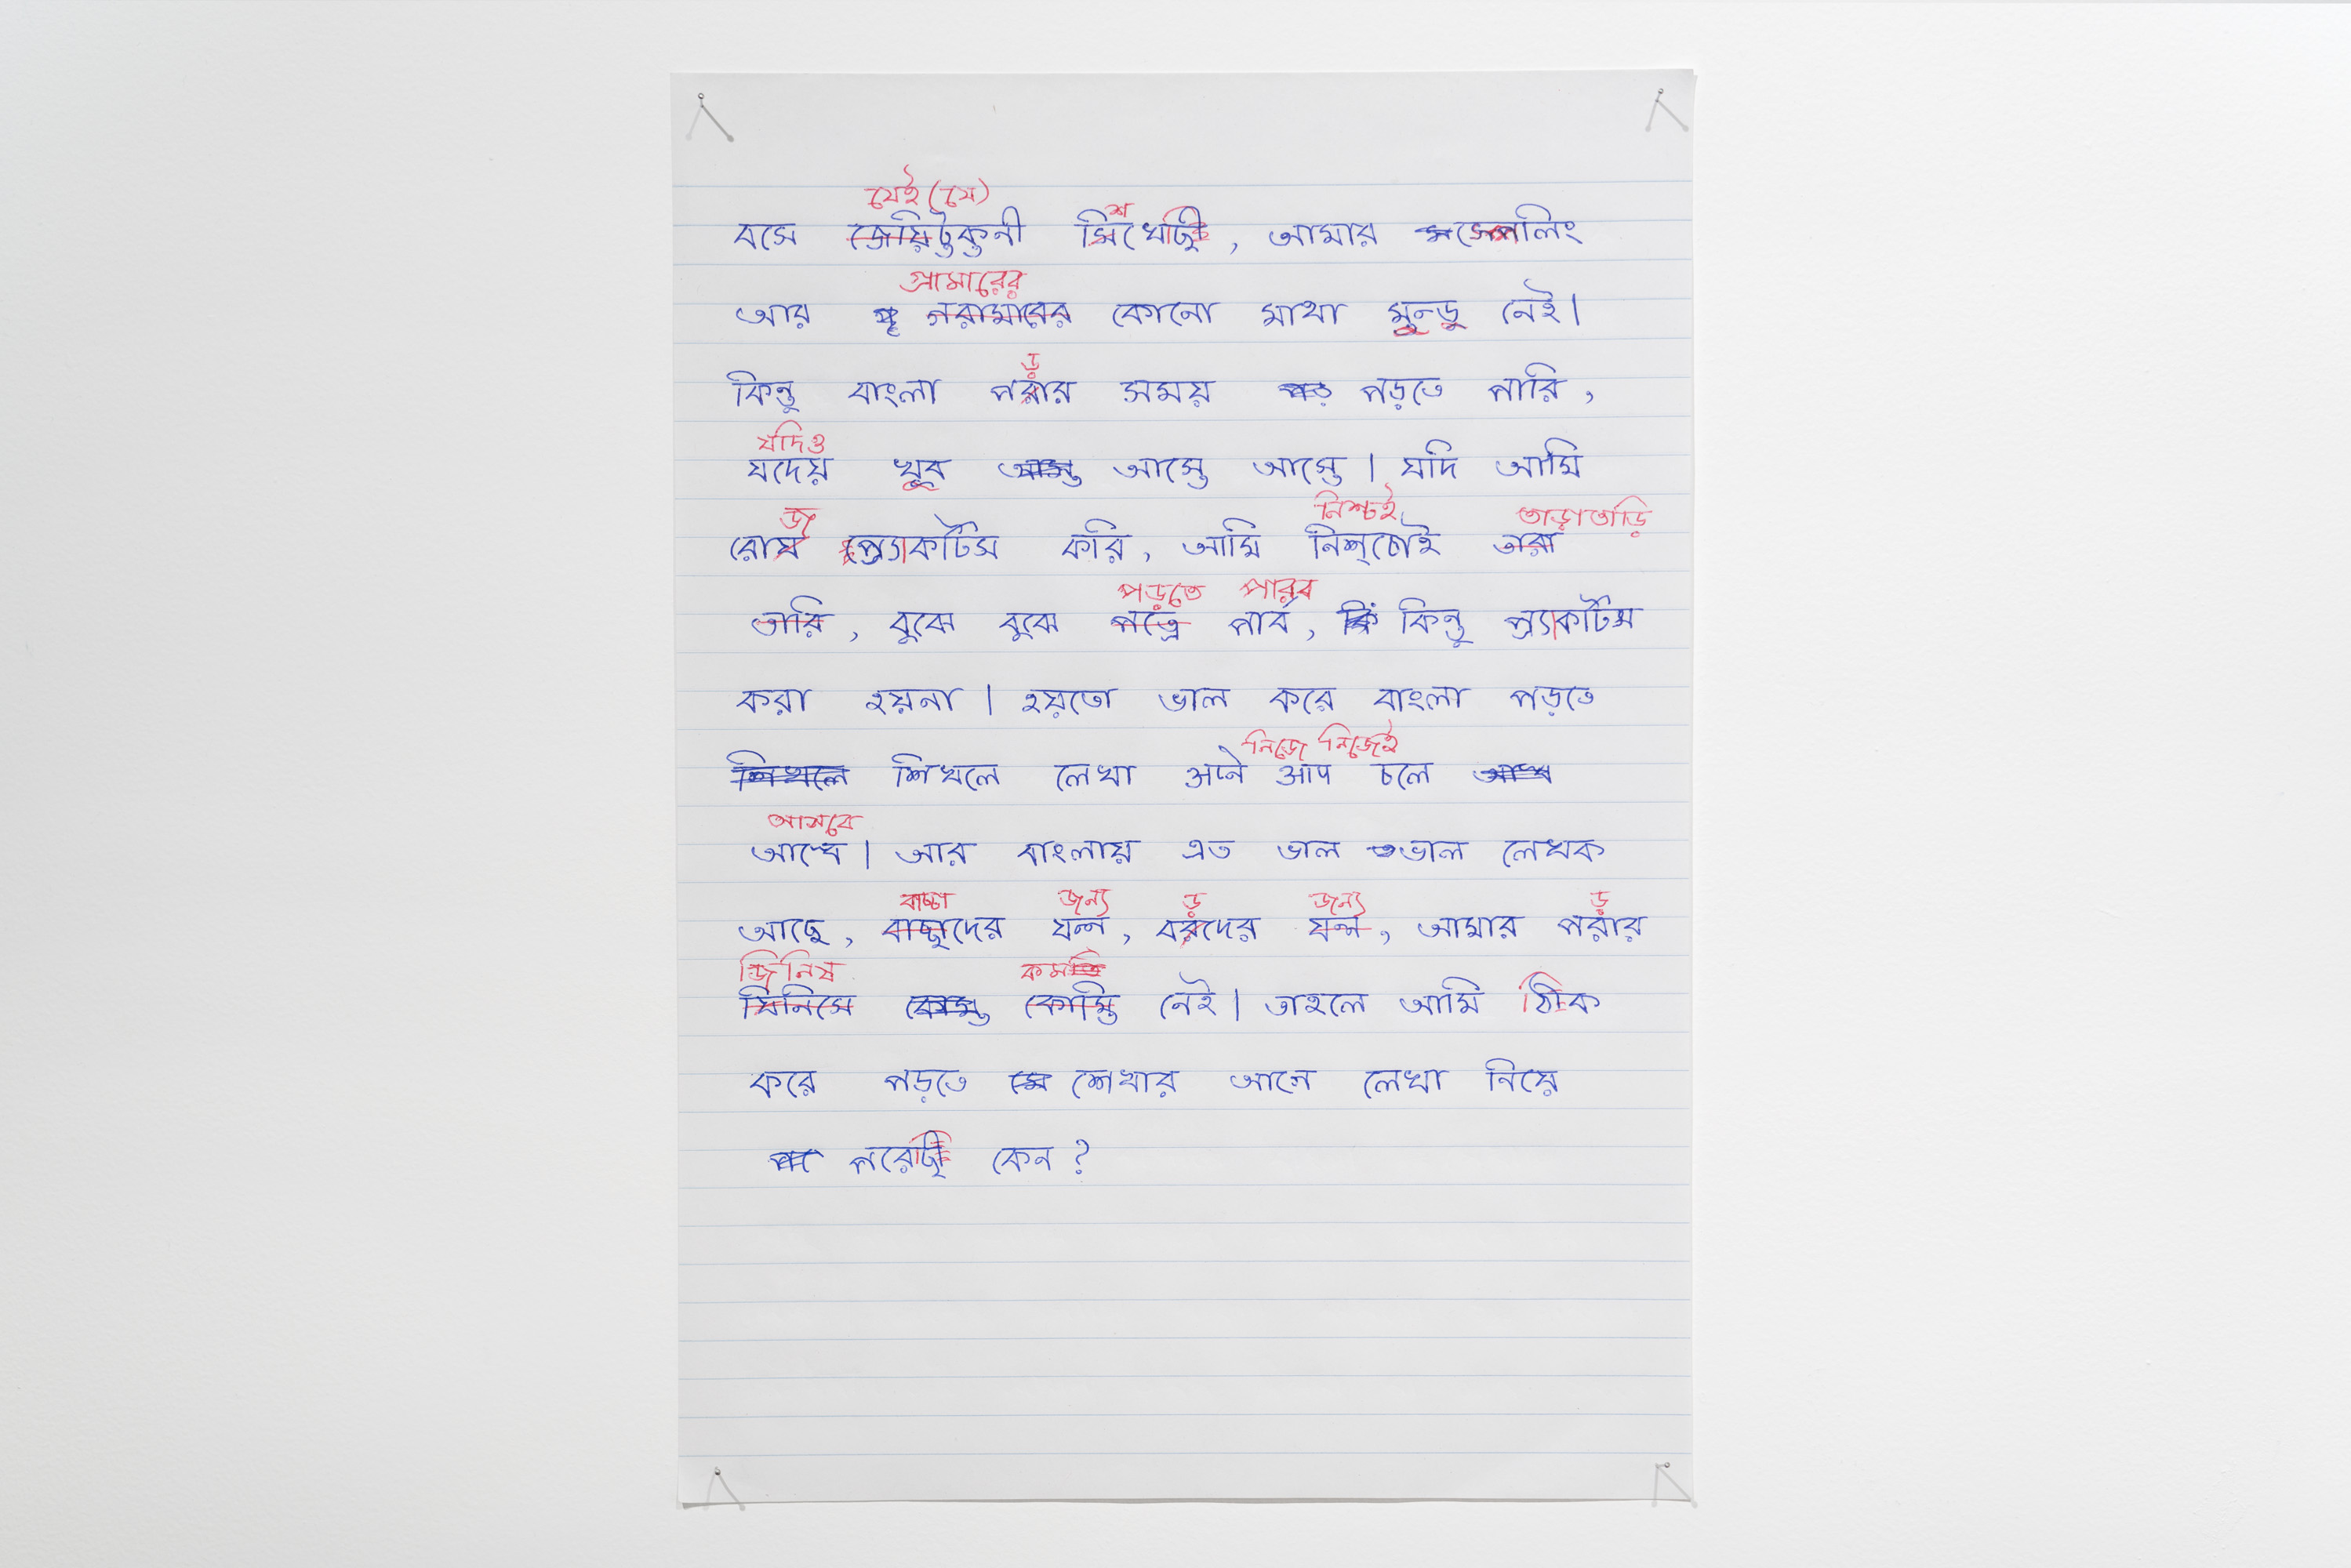 যেই (যে)
বসে জেয়িটুকুনী সিখেছী, আমার সেপলিং
শ
গ্রামারের
আর গরামারের কোনো মাথা মুন্ডু নেই।
ড়
কিন্তু বাংলা পরার সময় পড়তে পারি,
যদিও
যদেয় খুব আস্তে আস্তে। যদি আমি
জ নিশ্চই তাড়াতাড়ি
রোয প্র্যাকটিস করি, আমি নিশ্চোই তারা
পড়তে পারব
তারি, বুঝে বুঝে পত্রে পার্ব, কিন্তু প্র্যাকটিস
করা হয়না। হয়তো ভাল করে বাংলা পড়তে
নিজে নিজেই
শিখলে শিখলে লেখা अपने आप চলে
আসবে
আস্বে। আর বাংলায় এত ভাল ভাল লেখক
বাচ্চা জন্য ড় জন্য ড়
আছে, বাছ্ছাদের যন্ন, বরদের যন্ন, আমার পরার
জিনিষ কমতি
যিনিসে কোম্তি নেই। তাহলে আমি ঠিক
করে পড়তে শেখার আগে লেখা নিয়ে
পরেছী কেন?